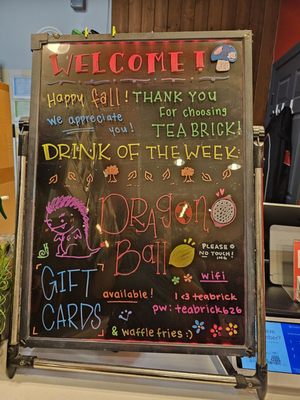 WELCOME!
Happy fall! THANK YOU
We appreciate you!
For choosing
TEA BRICK!
DRINK OF THE WEEK:
DRAGON
Ball
PLEASE
NO TOUCH!
GIFT
CARDS
available!
wifi
I <3 teabrick
pw: teabrick626
& waffle fries :)